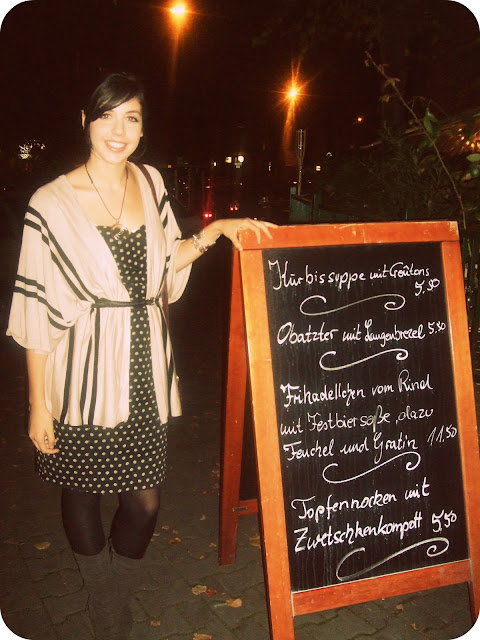 Kürbissuppe mit Croûtons
5.90
Obatzter mit Laugenbrezel 5.90
Frikadellchen vom Rind
mit Festbiersoße, dazu
Fenchel und Gratin 11.50
Topfennocken mit
Zwetschkenkompott 5,50